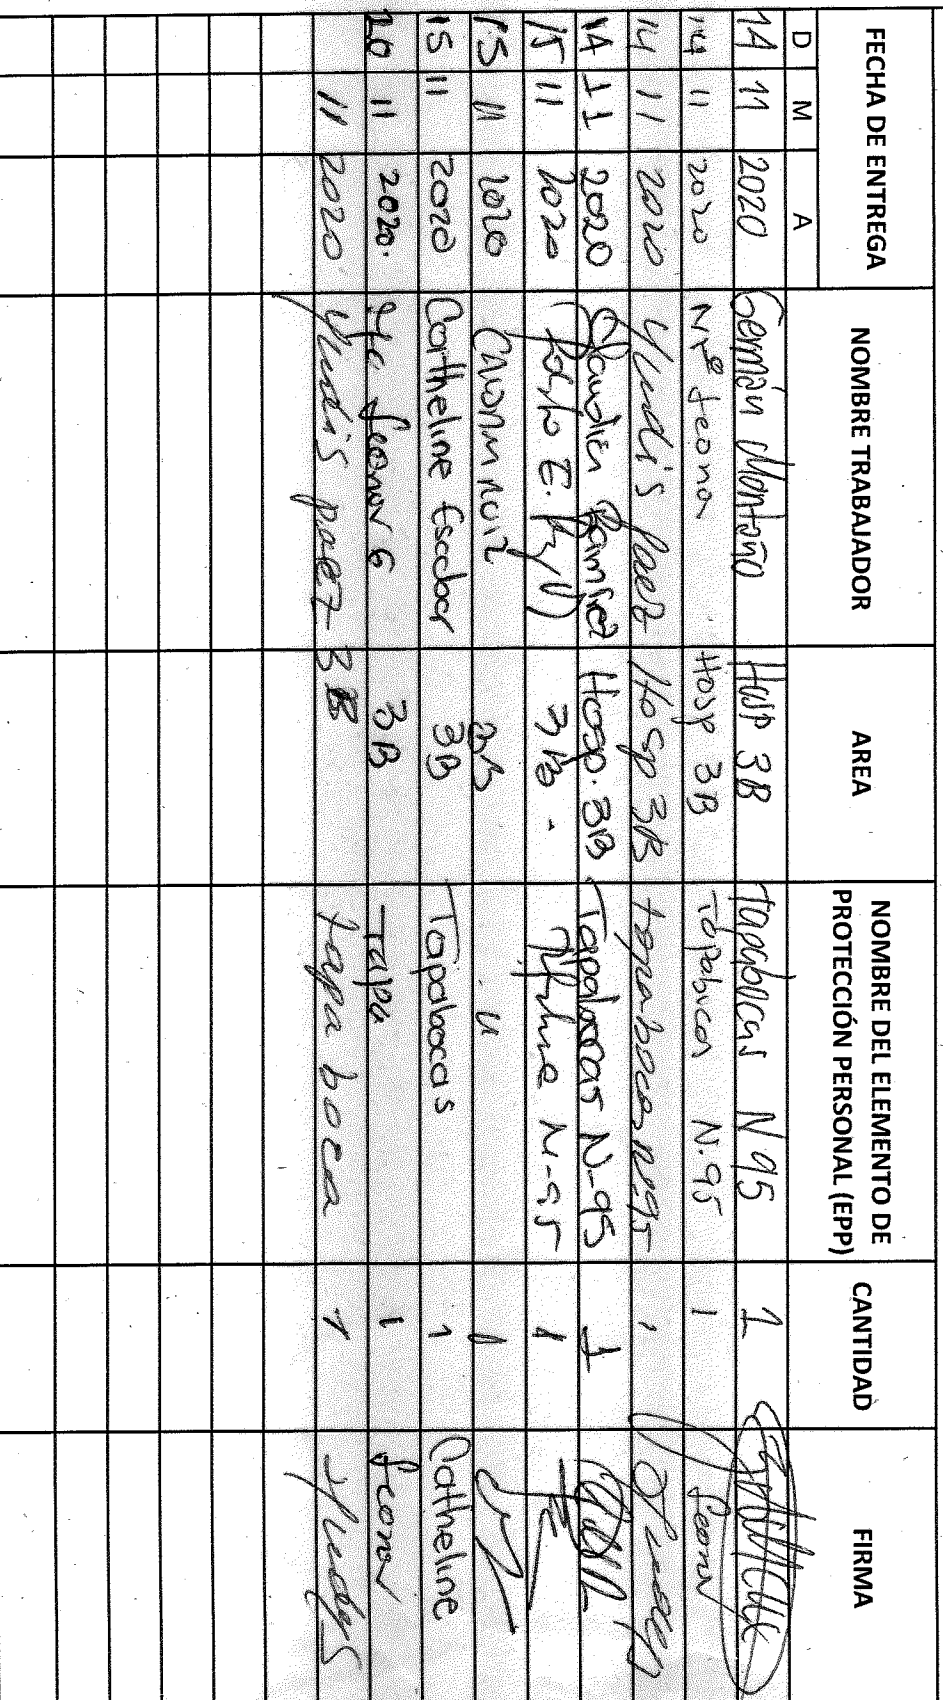 FECHA DE ENTREGA NOMBRE TRABAJADOR AREA NOMBRE DEL ELEMENTO DE PROTECCIÓN PERSONAL (EPP) CANTIDAD FIRMA
D M A
14 11 2020 Germán Montaño Hosp 3B Tapabocas N95 1
14 11 2020 Leonor Hosp 3B Tapabocas N.95 1 Leonor
14 11 2020 Yudis Paez Hosp 3B tapabocas N95 1
14 11 2020 Claudia Ramirez Hosp. 3B Tapabocas N-95 1
15 11 2020 E. 3B. N-95 1
15 11 2020 3B " 1
15 11 2020 Catheline Escobar 3B Tapabocas 1 Catheline
20 11 2020. Leonor G 3B Tapa 1 Leonor
11 2020 Yudis paez 3B tapa boca 1 Yudis